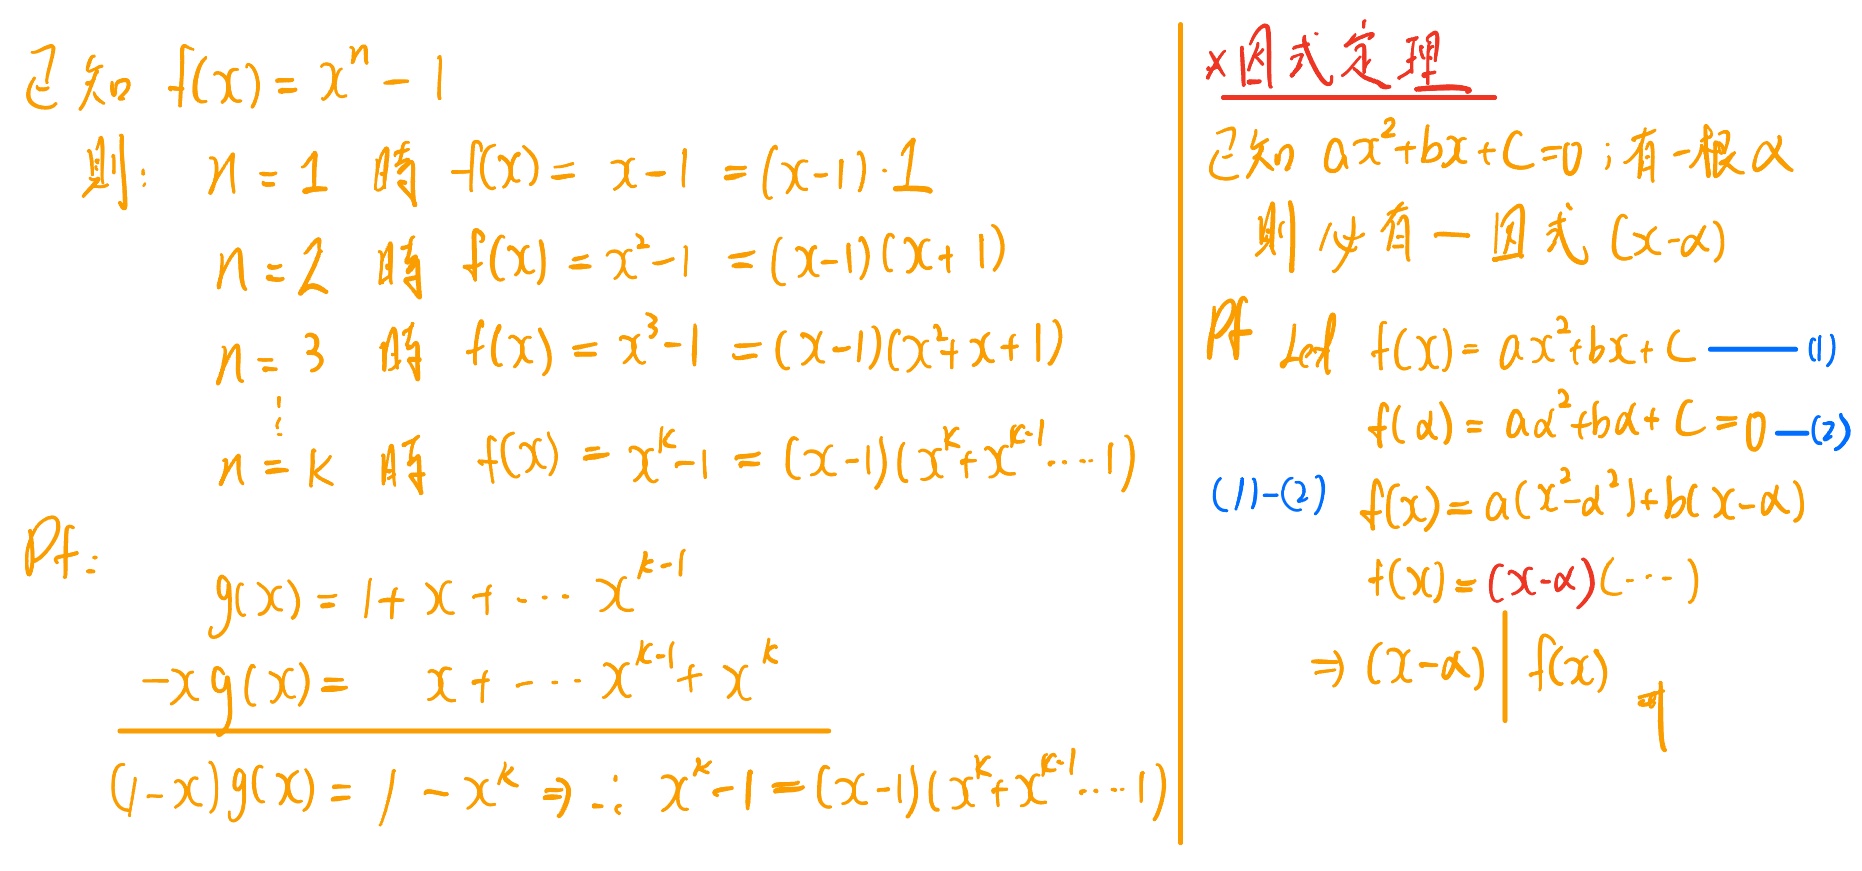 已知 f(x) = xⁿ - 1
則: n = 1 時 f(x) = x-1 = (x-1)·1
n = 2 時 f(x) = x²-1 = (x-1)(x+1)
n = 3 時 f(x) = x³-1 = (x-1)(x²+x+1)
⋮
n = k 時 f(x) = xᵏ-1 = (x-1)(xᵏ+xᵏ⁻¹....1)
Pf:
g(x) = 1+x+...xᵏ⁻¹
-xg(x) = x+...xᵏ⁻¹+xᵏ
(1-x)g(x) = 1-xᵏ ⇒ ∴ xᵏ-1 = (x-1)(xᵏ+xᵏ⁻¹....1)
×因式定理
已知 ax²+bx+c=0 ; 有一根α
則必有一因式 (x-α)
Pf Let f(x) = ax²+bx+c —(1)
f(α) = aα²+bα+c = 0 —(2)
(1)-(2) f(x) = a(x²-α²)+b(x-α)
f(x) = (x-α)(...)
⇒ (x-α) | f(x)